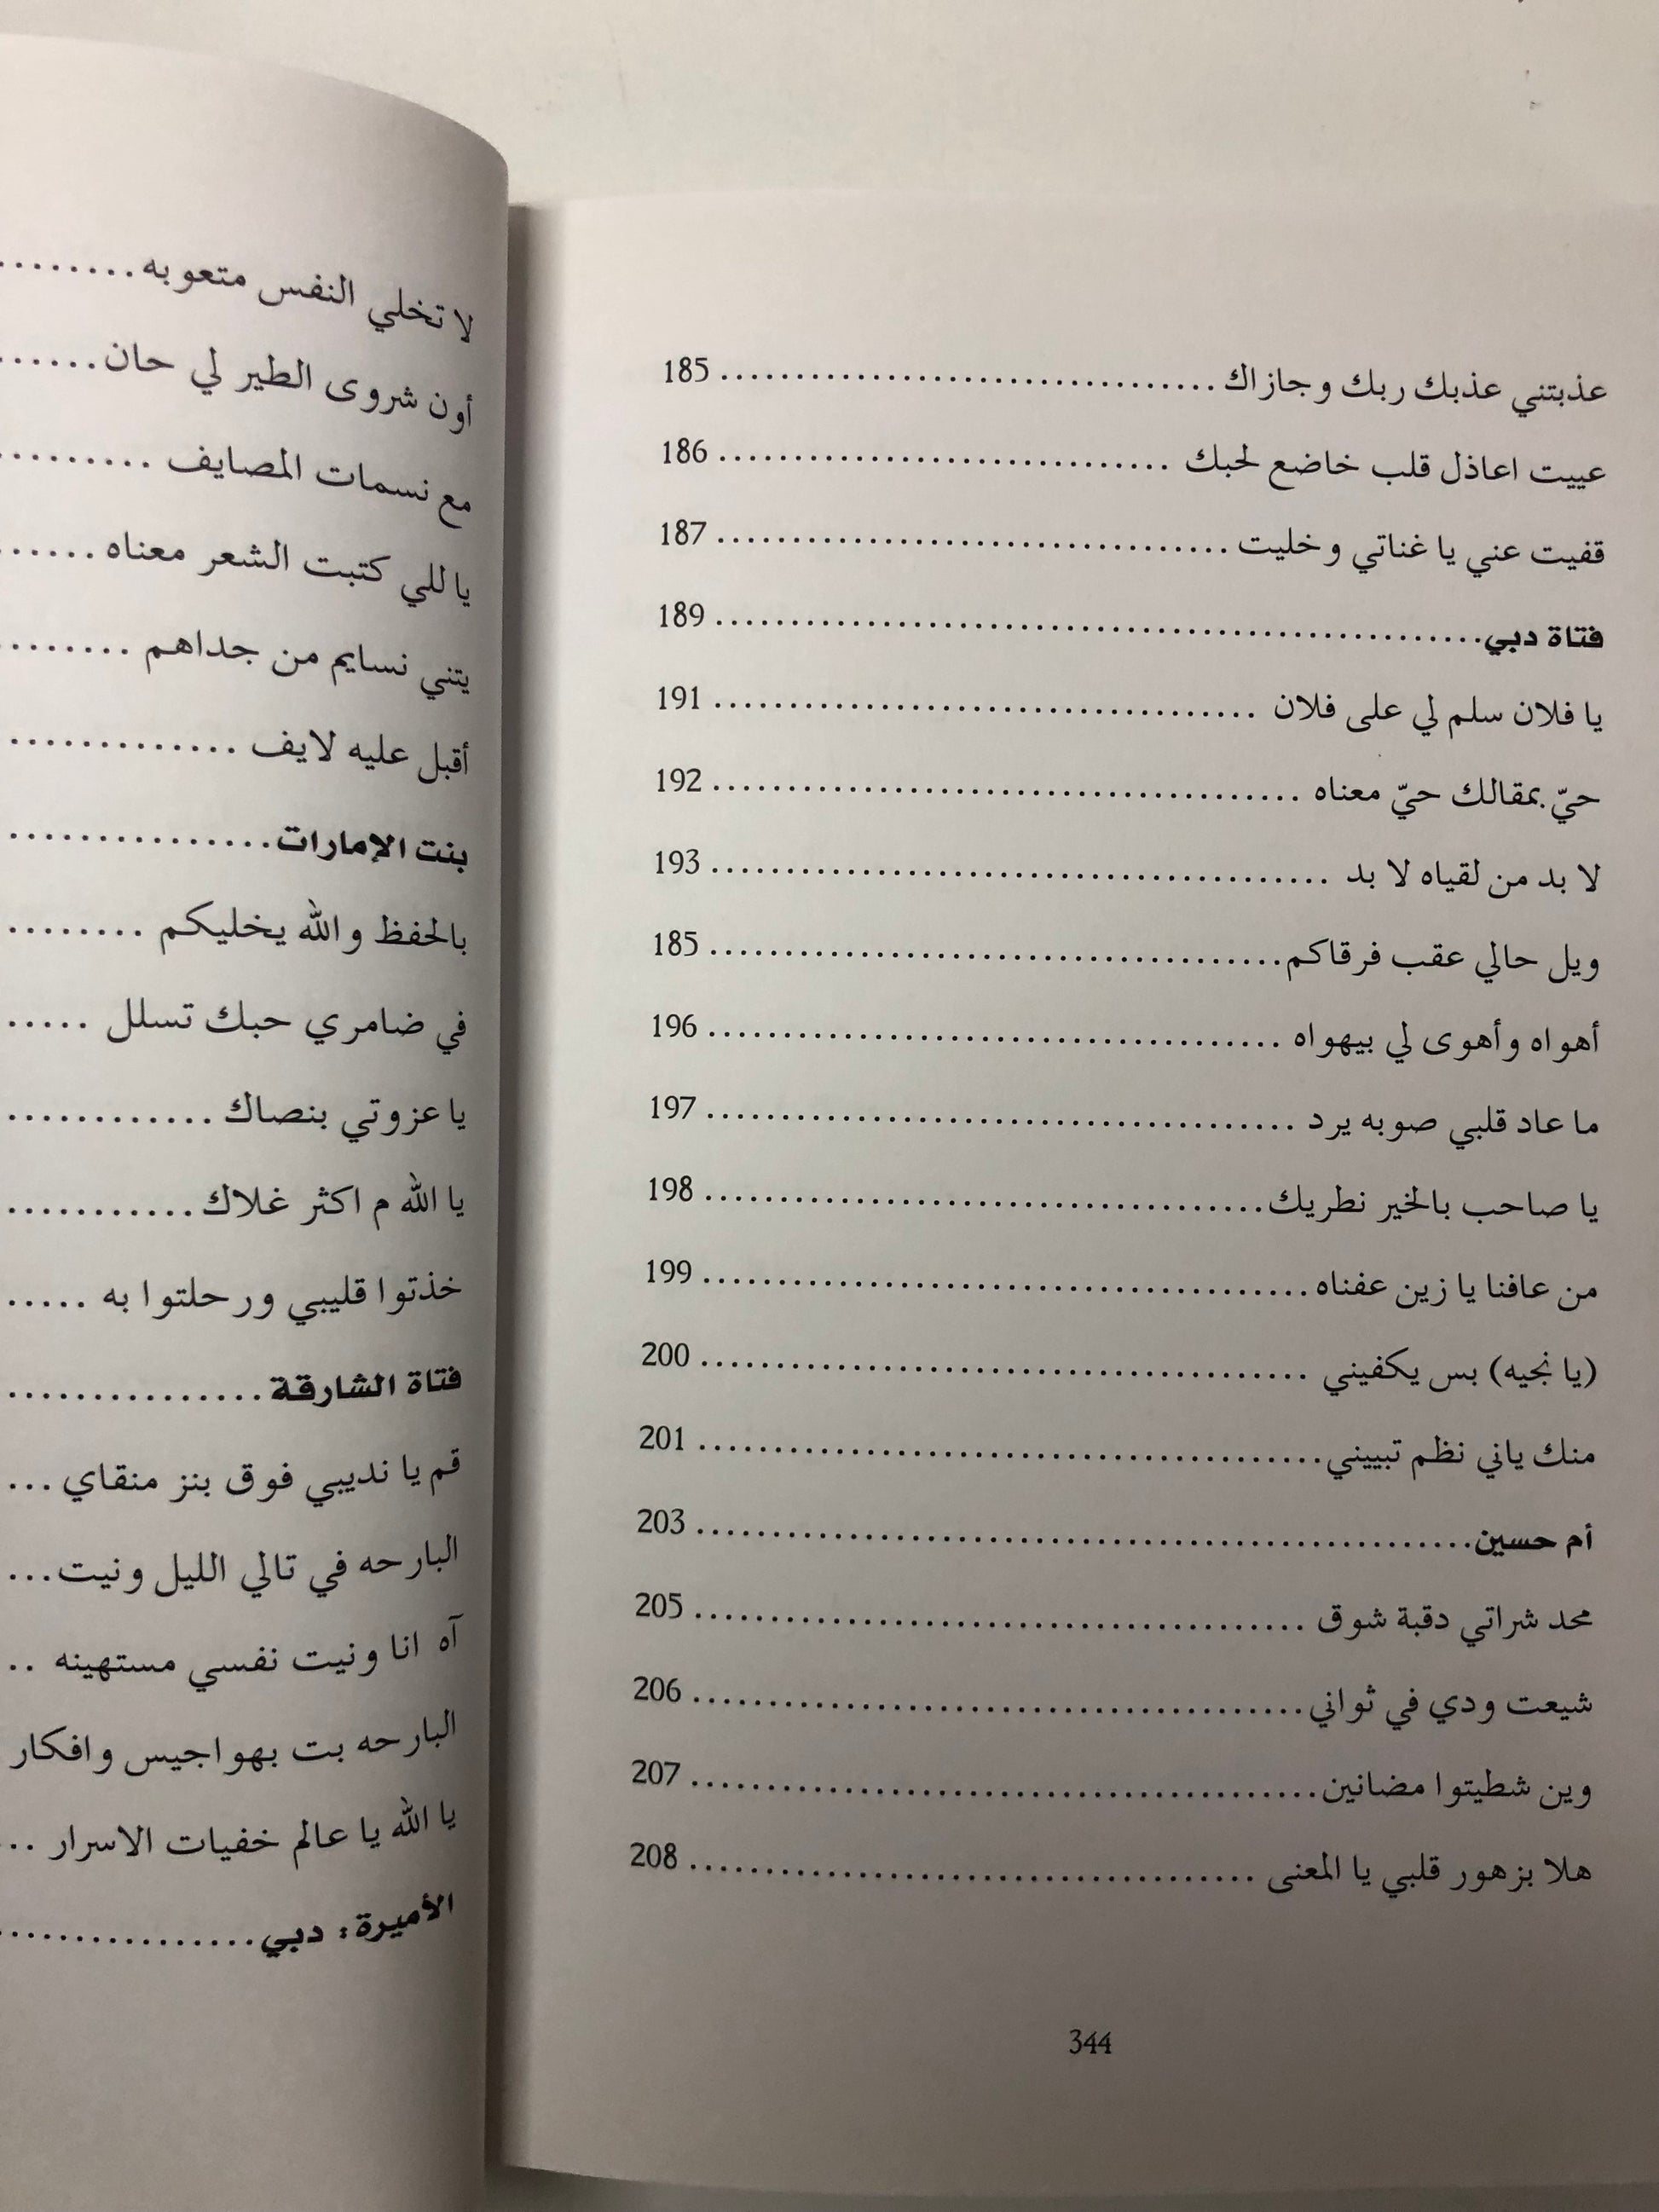 عذبتني عذبك ربك وجازاك ........ 185
عييت اعاذل قلب خاضع لحبك ........ 186
قفيت عني يا غناتي وخليت ........ 187
فتاة دبي ........ 189
يا فلان سلم لي على فلان ........ 191
حيّ بمقالك حيّ معناه ........ 192
لا بد من لقياه لا بد ........ 193
ويل حالي عقب فرقاكم ........ 185
أهواه وأهوى لي بيهواه ........ 196
ما عاد قلبي صوبه يرد ........ 197
يا صاحب بالخير نطريك ........ 198
من عافنا يا زين عفناه ........ 199
(يا نجيه) بس يكفيني ........ 200
منك ياني نظم تبييني ........ 201
أم حسين ........ 203
محد شراتي دقبة شوق ........ 205
شيعت ودي في ثواني ........ 206
وين شطيتوا مضانين ........ 207
هلا بزهور قلبي يا المعنى ........ 208
344
لا تخلي النفس متعوبه ........
أون شروى الطير لي حان ........
مع نسمات المصايف ........
ياللي كتبت الشعر معناه ........
يتني نسايم من جداهم ........
أقبل عليه لايف ........
بنت الإمارات ........
بالحفظ والله يخليكم ........
في ضامري حبك تسلل .....
يا عزوتي بنصاك ........
يا الله م اكثر غلاك ........
خذتوا قليبي ورحلتوا به .....
فتاة الشارقة ........
قم يا نديبي فوق بنز منقاي ...
البارحه في تالي الليل ونيت ...
آه انا ونيت نفسي مستهينه ..
البارحه بت بهواجيس وافكار
يا الله يا عالم خفيات الاسرار ...
الأميرة: دبي ........